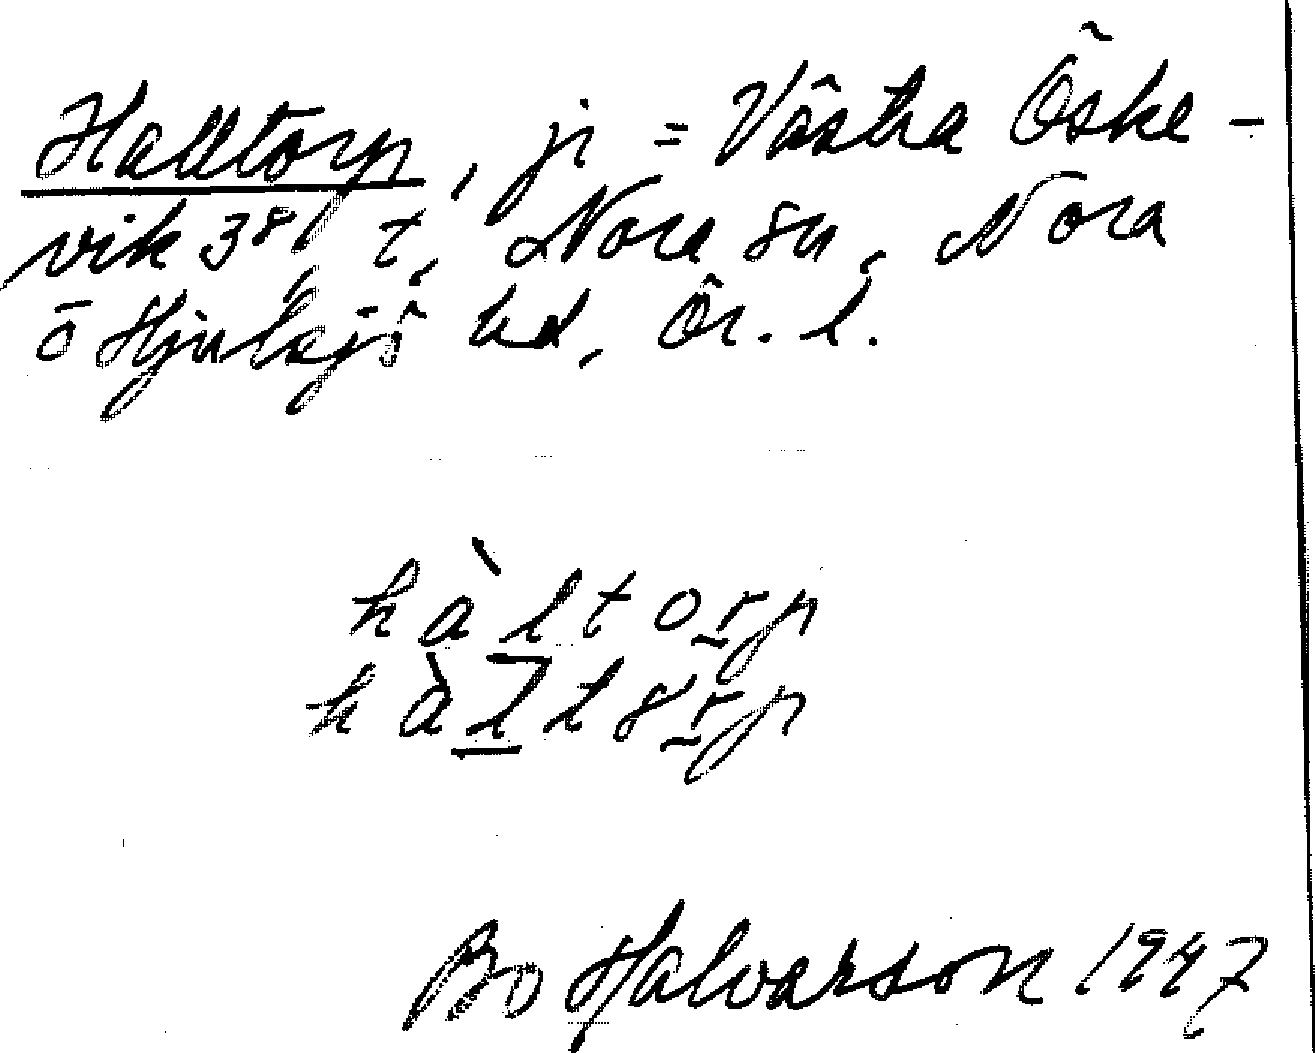 Halltorp, ji = Västra Öske-
vik 3⁸, t. Nora sn, Nora
o Hjulsjö hd, Ör. l.
hàltorp
hàlltorp
Bo Halvarson 1947